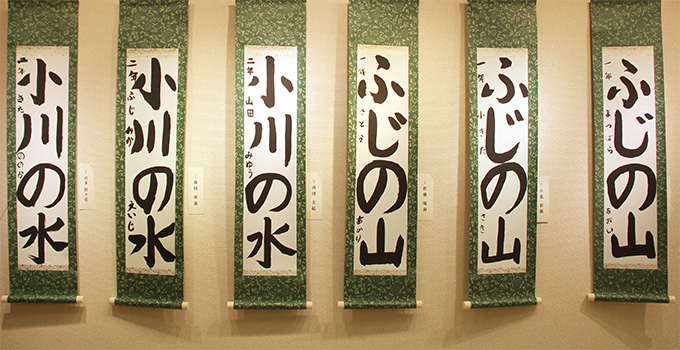 小川の水
二年 きた ののか
小川の水
二年 ふじ めか えいじ
小川の水
二年 山田 みゆう
ふじの山
一年 さとう あかり
ふじの山
一年 小きた さき
ふじの山
一年 まつばら あおい